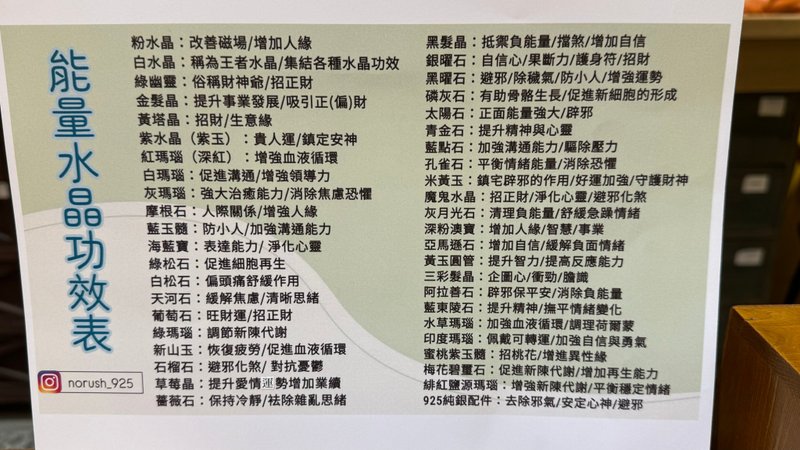 能量水晶功效表
norush_925
粉水晶：改善磁場/增加人緣
白水晶：稱為王者水晶/集結各種水晶功效
綠幽靈：俗稱財神爺/招正財
金髮晶：提升事業發展/吸引正(偏)財
黃塔晶：招財/生意緣
紫水晶（紫玉）：貴人運/鎮定安神
紅瑪瑙（深紅）：增強血液循環
白瑪瑙：促進溝通/增強領導力
灰瑪瑙：強大治癒能力/消除焦慮恐懼
摩根石：人際關係/增強人緣
藍玉髓：防小人/加強溝通能力
海藍寶：表達能力/ 淨化心靈
綠松石：促進細胞再生
白松石：偏頭痛舒緩作用
天河石：緩解焦慮/清晰思緒
葡萄石：旺財運/招正財
綠瑪瑙：調節新陳代謝
新山玉：恢復疲勞/促進血液循環
石榴石：避邪化煞/ 對抗憂鬱
草莓晶：提升愛情運勢增加業績
薔薇石：保持冷靜/袪除雜亂思緒
黑髮晶：抵禦負能量/擋煞/增加自信
銀曜石：自信心/果斷力/護身符/招財
黑曜石：避邪/除穢氣/防小人/增強運勢
磷灰石：有助骨骼生長/促進新細胞的形成
太陽石：正面能量強大/辟邪
青金石：提升精神與心靈
藍點石：加強溝通能力/驅除壓力
孔雀石：平衡情緒能量/消除恐懼
米黃玉：鎮宅辟邪的作用/好運加強/守護財神
魔鬼水晶：招正財/淨化心靈/避邪化煞
灰月光石：清理負能量/舒緩急躁情緒
深粉澳寶：增加人緣/智慧/事業
亞馬遜石：增加自信/緩解負面情緒
黃玉圓管：提升智力/提高反應能力
三彩髮晶：企圖心/衝勁/膽識
阿拉善石：辟邪保平安/消除負能量
藍東陵石：提升精神/撫平情緒變化
水草瑪瑙：加強血液循環/調理荷爾蒙
印度瑪瑙：佩戴可轉運/加強自信與勇氣
蜜桃紫玉髓：招桃花/增進異性緣
梅花碧璽石：促進新陳代謝/增加再生能力
緋紅鹽源瑪瑙：增強新陳代謝/平衡穩定情緒
925純銀配件：去除邪氣/安定心神/避邪